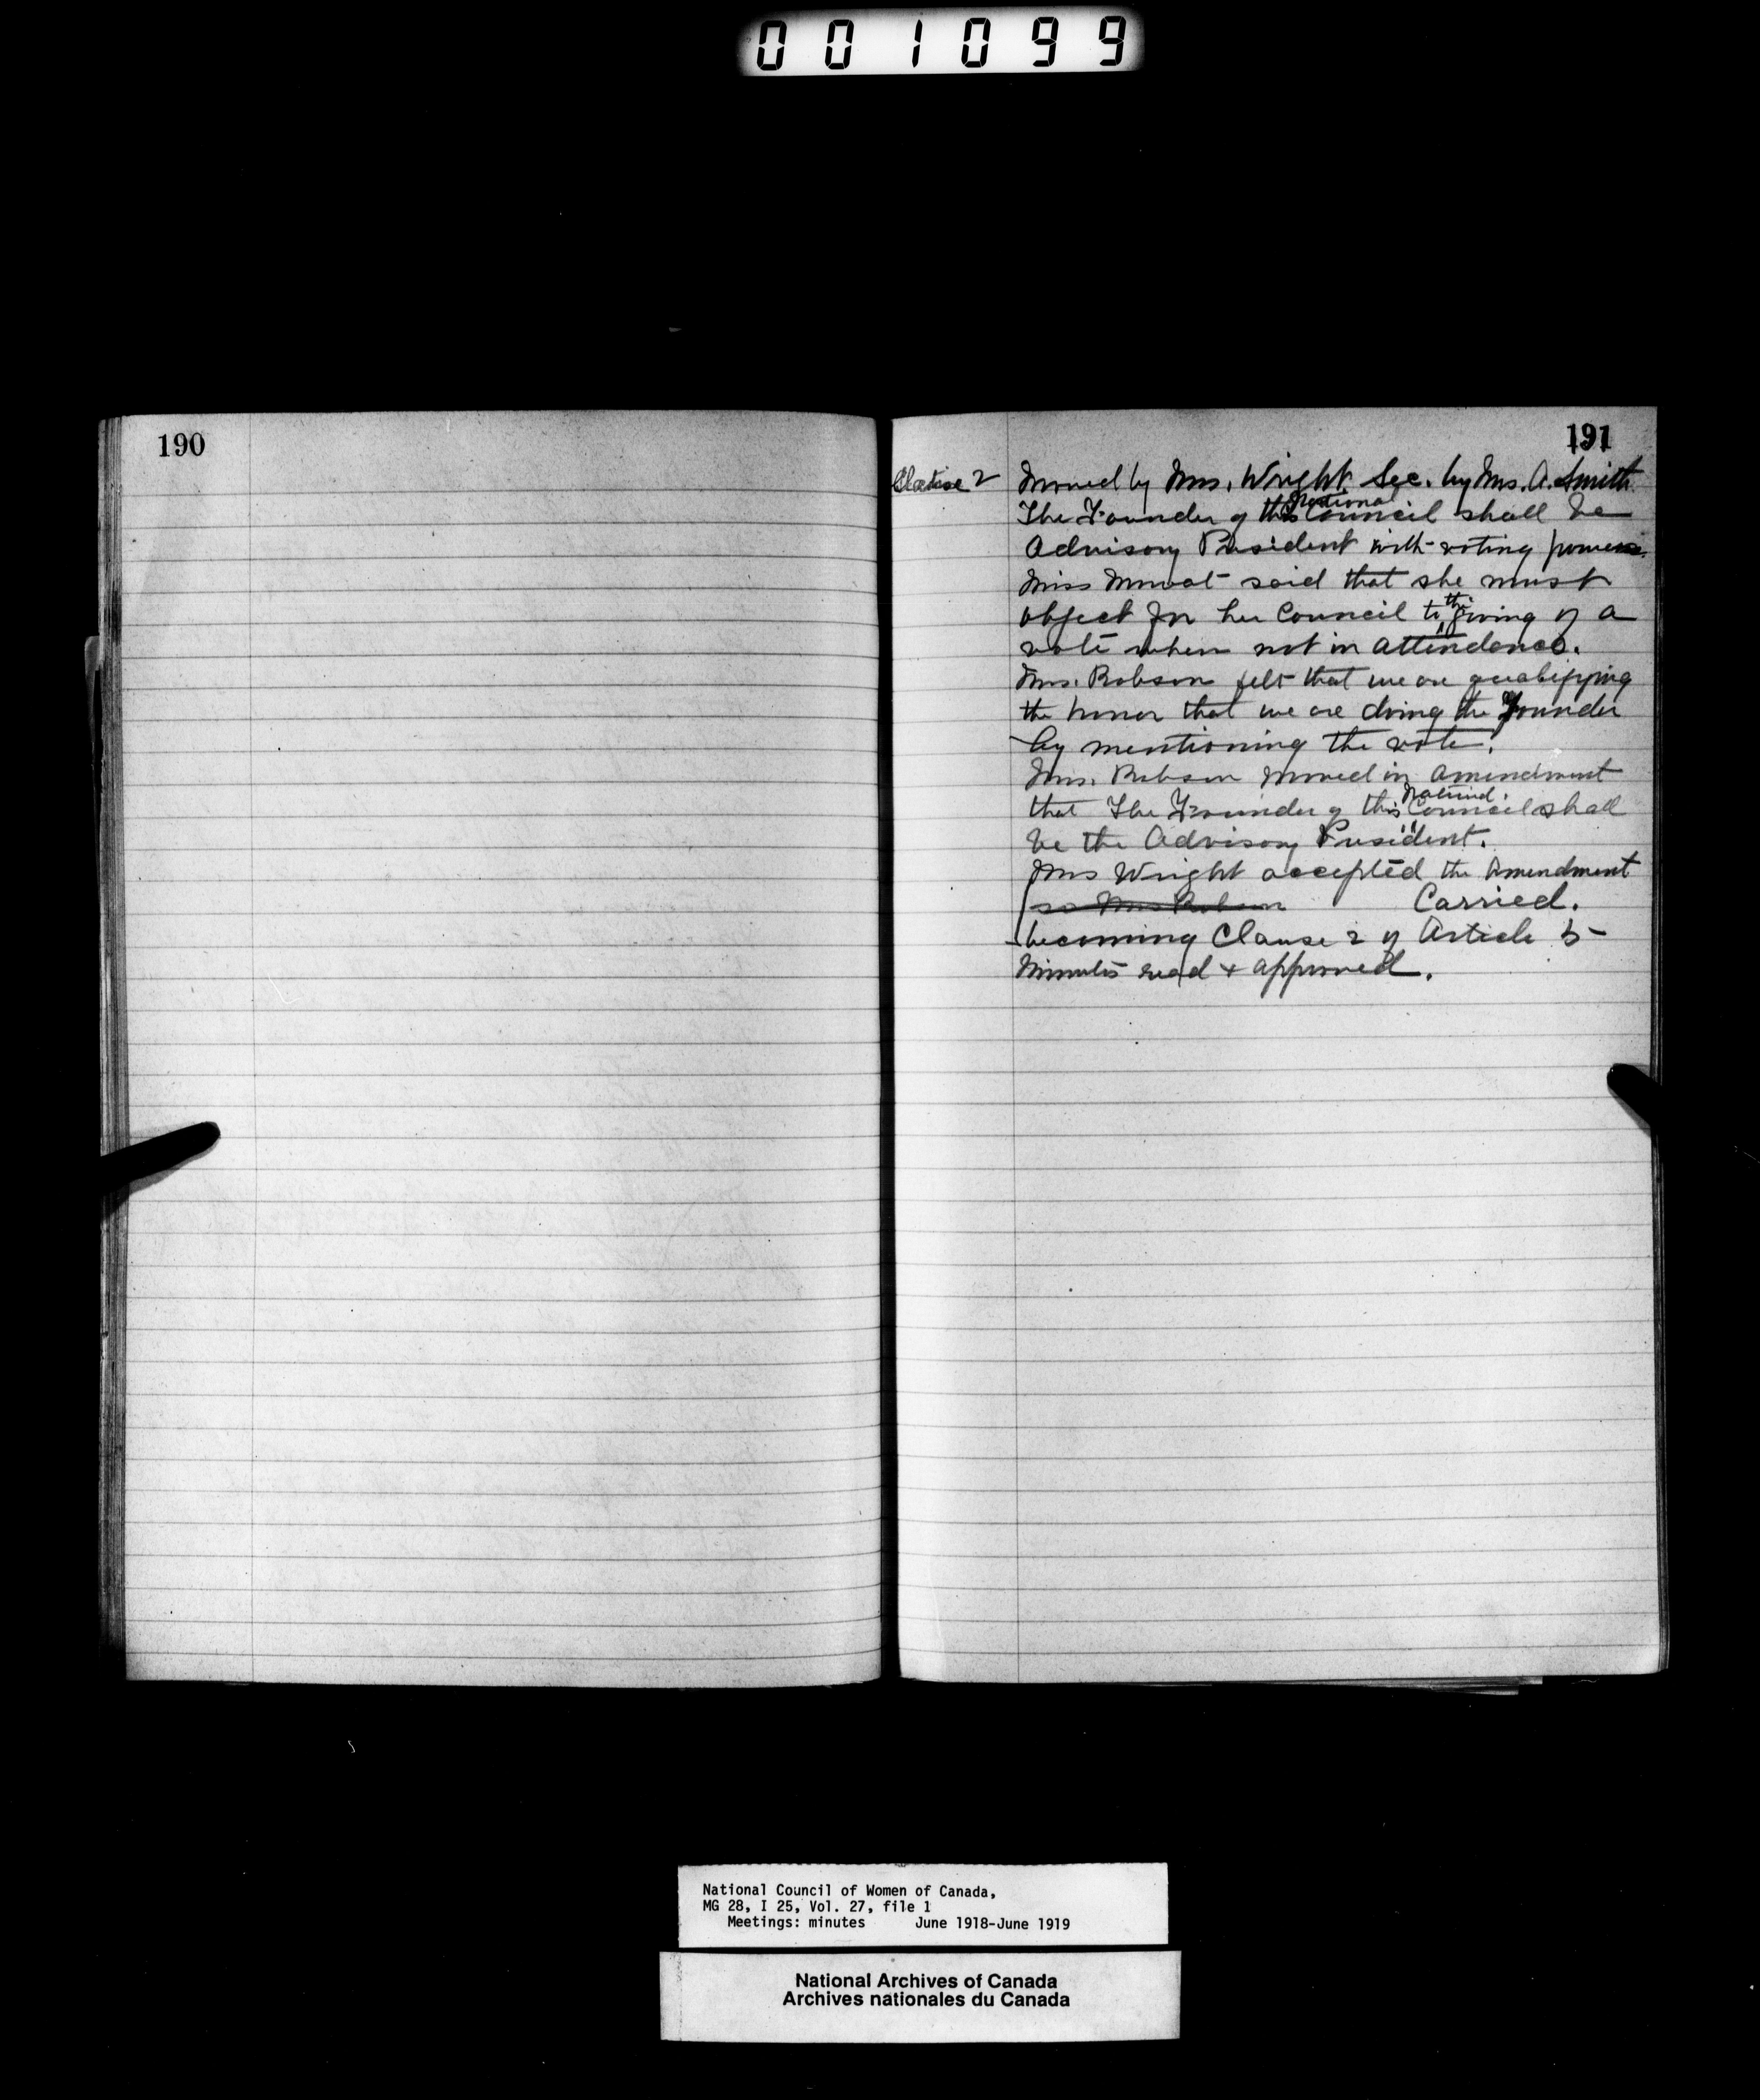 001099
190
191
Clause 2
Moved by Mrs. Wright. Sec. by Mrs. A. Smith.
The Founder of this National Council shall be
Advisory President with voting powers.
Miss Mowat said that she must
object for her Council to the giving of a
vote when not in attendance.
Mrs. Robson felt that we are qualifying
the honor that we are doing the Founder
by mentioning the vote.
Mrs. Robson moved in amendment
that The Founder of this National Council shall
be the Advisory President.
Mrs Wright accepted the Amendment
so Mrs Robson Carried.
becoming Clause 2 of Article 5-
Minutes read + approved.
National Council of Women of Canada,
MG 28, I 25, Vol. 27, file 1
Meetings: minutes June 1918-June 1919
National Archives of Canada
Archives nationales du Canada